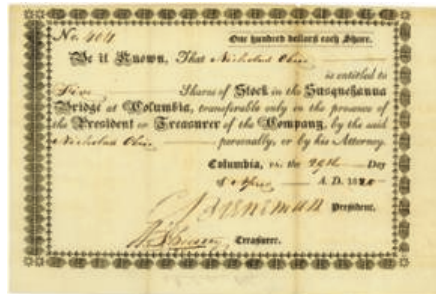 No. 404 One hundred dollars each Share.
Be it Known, That Nicholas
is entitled to
Five Shares of Stock in the Susquehanna
Bridge at Columbia, transferable only in the presence of
the President or Treasurer of the Company, by the said
Nicholas personally, or by his Attorney.
Columbia, the 29th Day
of April A. D. 18
President.
Treasurer.